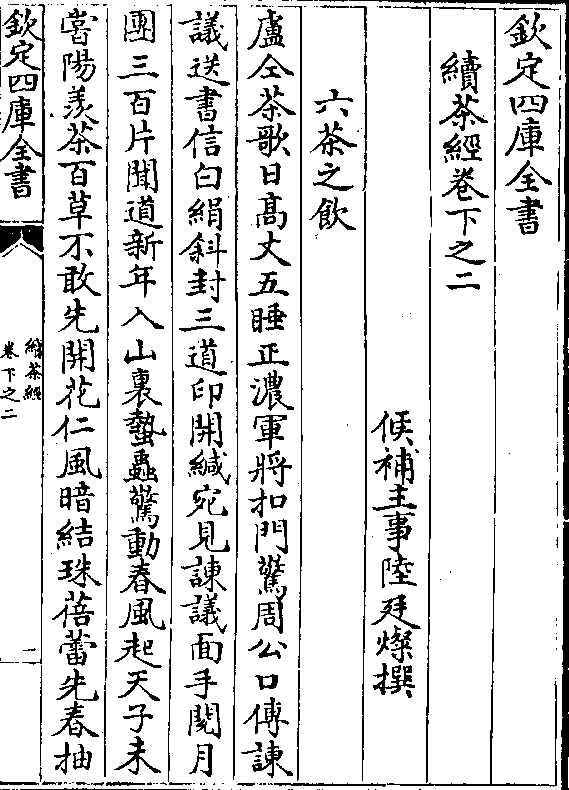 欽定四庫全書
續茶經卷下之二
候補主事陸廷燦撰
六茶之飲
盧仝茶歌日髙丈五睡正濃軍將扣門驚周公口傳諫
議送書信白絹斜封三道印開緘宛見諫議面手閱月
團三百片聞道新年入山裏蟄蟲驚動春風起天子未
嘗陽羨茶百草不敢先開花仁風暗結珠蓓蕾先春抽
欽定四庫全書
續茶經
卷下之二
一